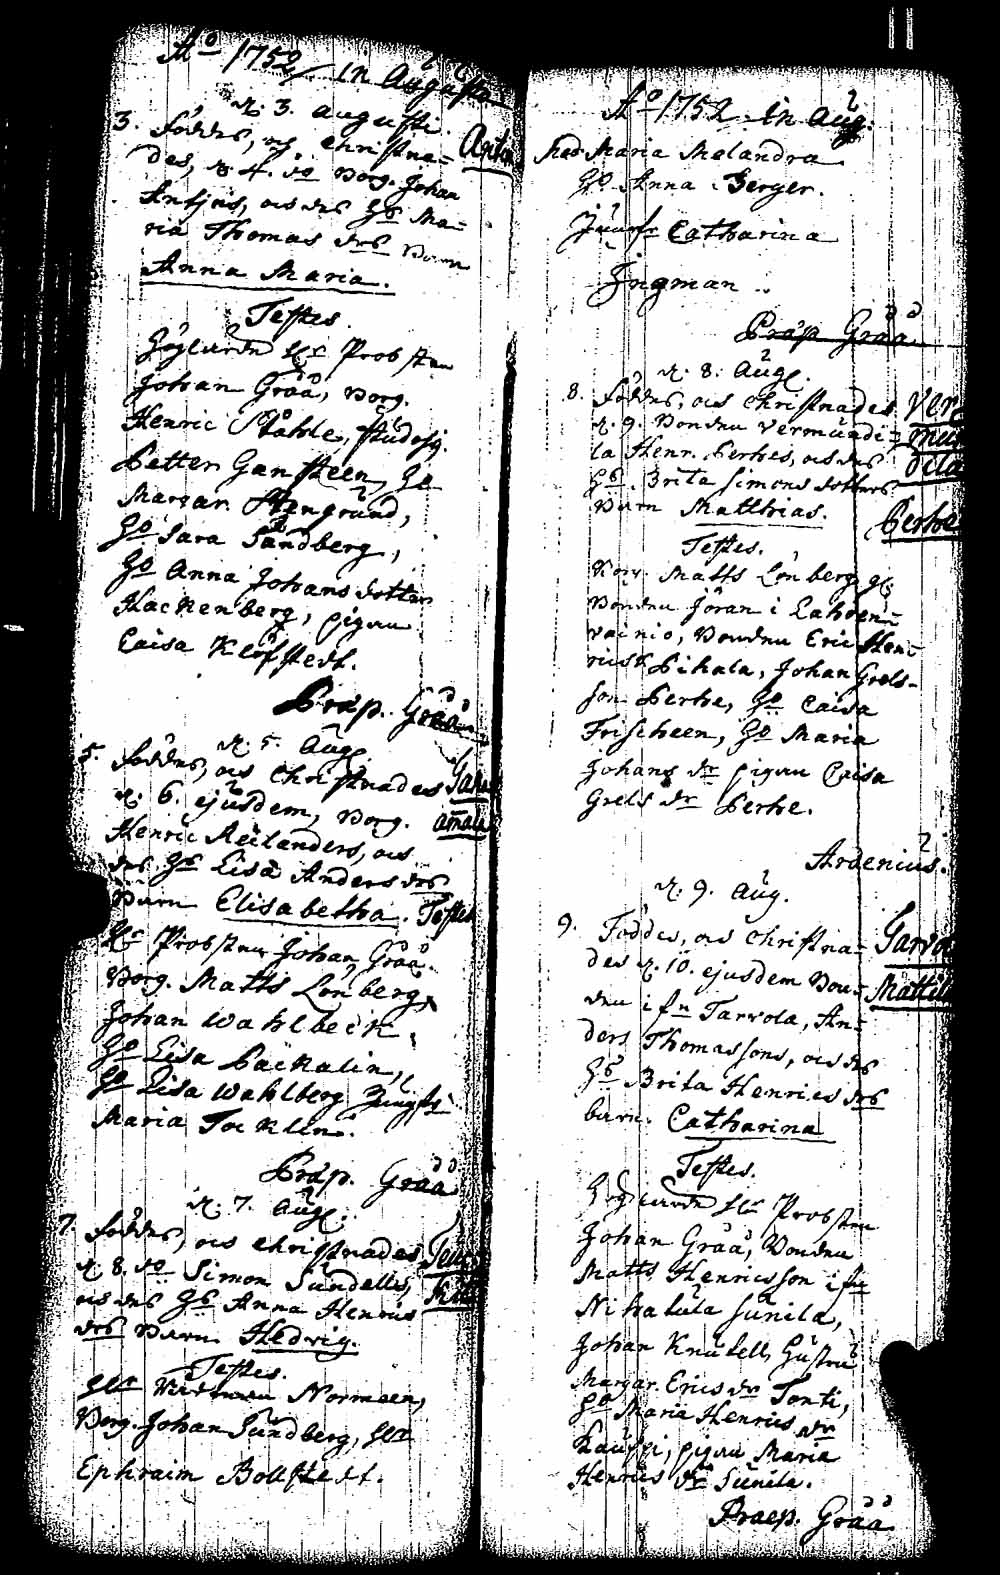 Ao 1752 in Augusti
d. 3. Augusti.
3. Föddes, och christna=
des, d. 4. do Borg. Johan
Antjus, och des Hö Ma=
ria Thomas drs barn
Anna Maria.
Testes.
Höglärde Hr Probsten
Johan Gråå, Borg.
Henric Ståhle, Studios.
Petter Gansteen, Ho
Margar. Stengrund,
Ho Sara Sundberg,
Ho Anna Johans dotter
Hackenberg, pigan
Caisa Klöfstedt.
Præp. Gråå
d. 5. Aug.
5. Föddes, och Christnades
d. 6. ejusdem, Borg.
Henric Reilanders, och
des Hö Lisa Anders drs
Barn Elisabetha. Testes
Hr Probsten Johan Gråå.
Borg. Matts Lönberg,
Johan Wahlbeck,
Ho Lisa Päckalin,
Ho Lisa Wahlberg Jungfr
Maria Tocklin.
Præp. Gråå
d. 7. Aug.
7. Föddes, och Christnades
d. 8. do Simon Sundells,
och des Hö Anna Henrics
drs Barn Hedwig.
Testes.
Hr Normeen,
Borg. Johan Sundberg, Hr
Ephraim Bollstedt.
Ao 1752 in Aug:
Maria Melandra
Ho Anna Berger.
Jungfr Catharina
Ingman
Præp Gråå
d. 8. Aug.
8. Föddes, och Christnades
d. 9. Bonden Vermundi=
la Henr. Perhes, och des
Hö Brita Simons dotters
Barn Matthias.
Testes.
Borg. Matts Lönberg
Bonden Jöran i Lahden=
vainio, Bonden Eric Hen=
rics Pihala, Johan Grels=
son Perhe, Ho Caisa
Frischeen, Ho Maria
Johans dr pigan Caisa
Grels dr Perhe.
Ardenius.
d. 9. Aug.
9. Föddes, och Christna=
des d. 10. ejusdem Bon=
den ifn Tarvola, An=
ders Thomassons, och des
Hö Brita Henrics drs
barn. Catharina
Testes.
Höglärde Hr Probsten
Johan Gråå, Bonden
Matts Henricsson ifn
Nihatula Sunila,
Johan Knutell, Hustru
Margar. Erics dr Tonti,
Ho Maria Henrics dr
Kauppi, pigan Maria
Henrics dr Sunila.
Præp. Gråå